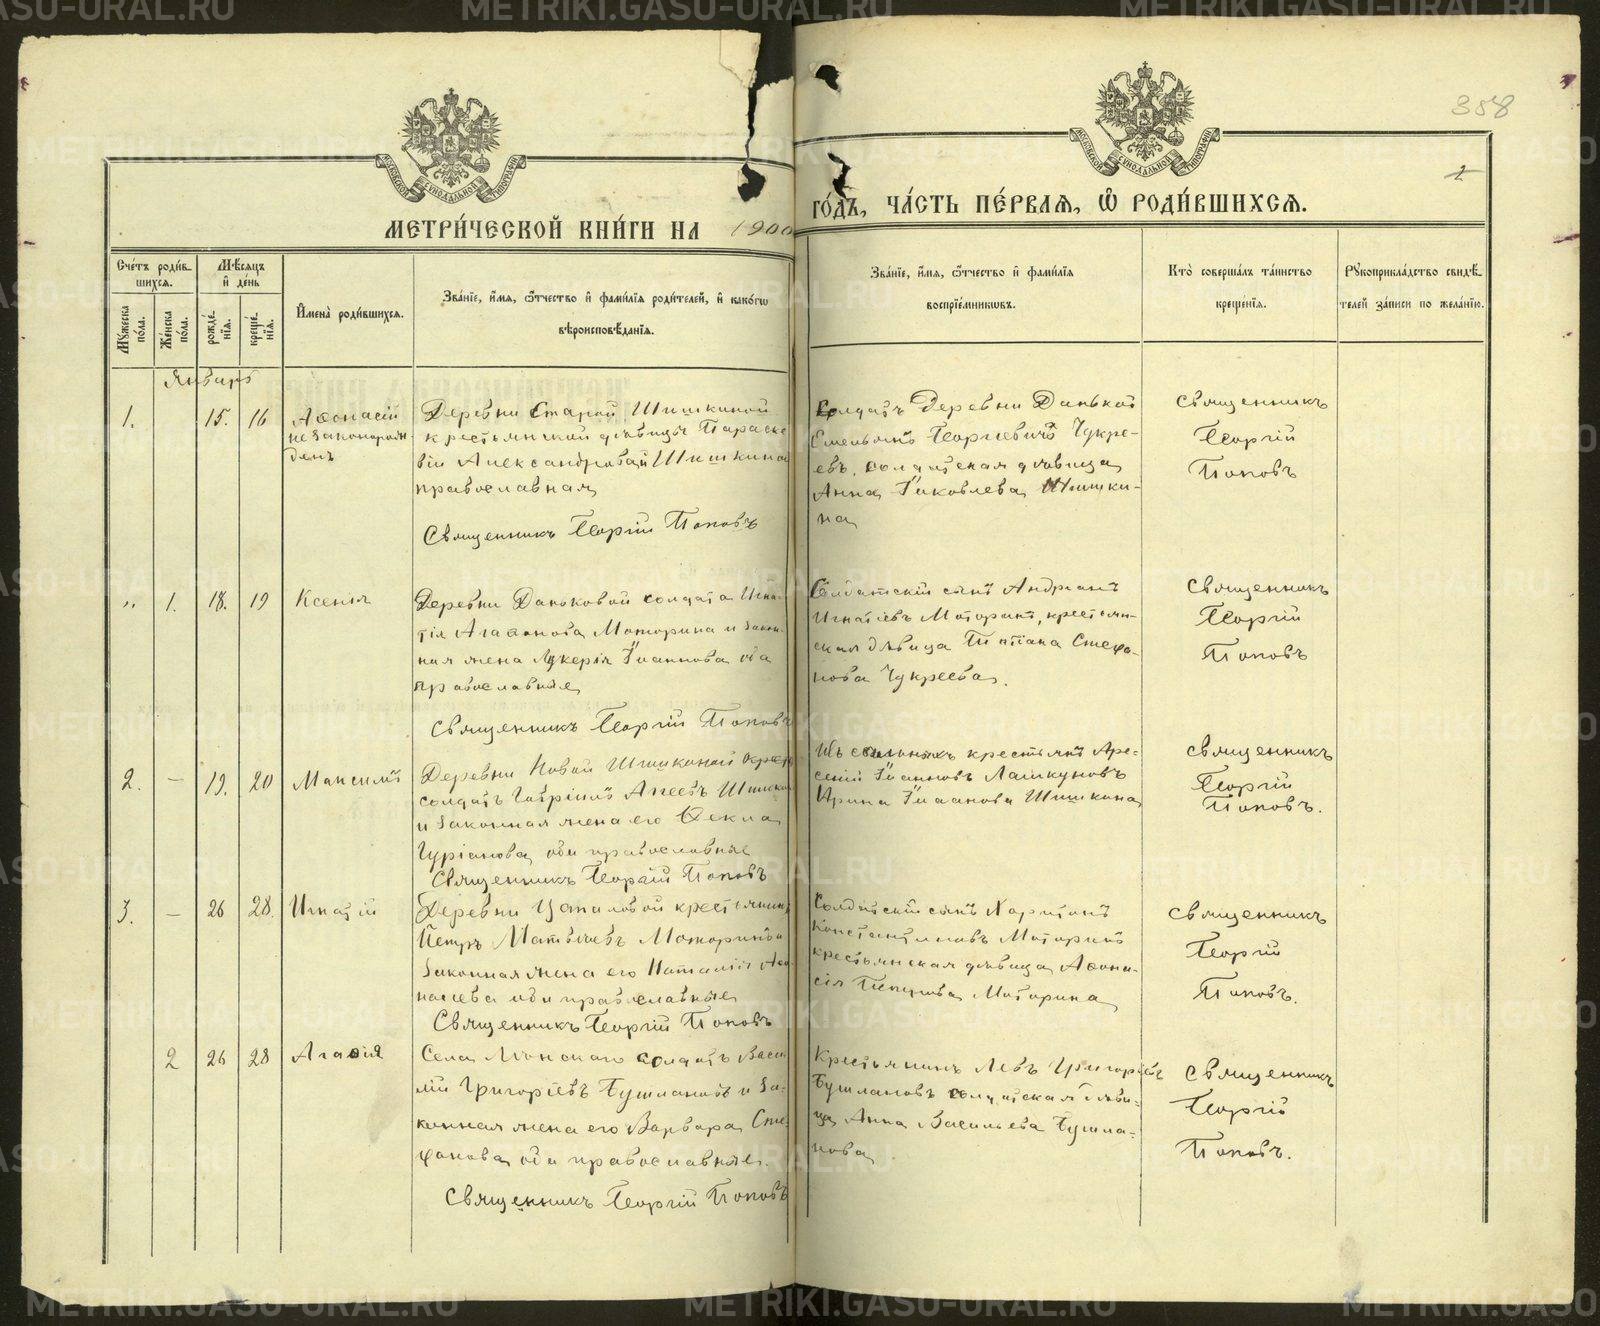 METRIKI.GASU-URAL.RU
358
1
МОСКОВСКОЙ СѴНОДАЛЬНОЙ ТИПОГРАФІИ
МОСКОВСКОЙ СѴНОДАЛЬНОЙ ТИПОГРАФІИ
МЕТРИ́ЧЕСКОЙ КНИ́ГИ НА 1900
ГО́ДЪ, ЧА́СТЬ ПЕ́РВАЯ, Ѡ РОДИ́ВШИХСЯ.
Сче́тъ роди́в-
шихся.
Му́жеска по́ла.
Же́нска по́ла.
Мѣ́сяцъ
и де́нь
рожде́нїя.
креще́нїя.
И҆мена̀ роди́вшихся.
Зва́нїе, и҆́мя, ѻ҆́тчество и҆ фами́лїя роди́телей, и҆ како́гѡ
вѣроисповѣ́данїя.
Зва́нїе, и҆́мя, ѻ҆́тчество и҆ фами́лїя
воспрїе́мниковъ.
Кто̀ соверша́лъ та́инство
креще́нїя.
Рꙋкоприкла́дство свидѣ́-
телей за́писи по жела́нїю.
Январь
1. 15. 16
Аѳонасій
незаконорож-
денъ
Деревни Старой Шишкиной
крестьянской дѣвицы Параске
віи Александровой Шишкина
православная
Священникъ Георгій Поповъ
Солдатъ Деревни Даньковой
Емельянъ Георгіевичъ Чукре-
евъ, солдатская дѣвица
Анна Іаковлева Шишки-
на
Священникъ
Георгій
Поповъ
" 1. 18. 19
Ксенія
Деревни Даньковой солдата Игна-
тія Агаѳонова Моторина и закон-
ная жена Лукерія Іоаннова оба
православные
Священникъ Георгій Поповъ
Солдатскій сынъ Андріанъ
Игнатіевъ Моторинъ, крестьян-
ская дѣвица Татіана Стефа-
нова Чукреева.
Священникъ
Георгій
Поповъ
2. — 19. 20
Максимъ
Деревни Новой Шишкиной
солдатъ Гавріилъ Алеевъ Шишкин
и законная жена его Ѳекла
Гуріанова, оби православные
Священникъ Георгій Поповъ
крестьянъ Аре-
сеній Іоанновъ Лашкуновъ
Ирина Іоаннова Шишкина
Священникъ
Георгій
Поповъ.
3. — 26 28.
Игнатій
Деревни Цапаловой крестьянинъ
Петръ Матвѣевъ Моторинъ и
законная жена его Наталія Аѳо
насьева оби православные
Священникъ Георгій Поповъ
Солдатскій сынъ Харитонъ
Константиновъ Моторинъ
крестьянская дѣвица Аѳона-
сія Петрова Моторина
Священникъ
Георгій
Поповъ.
2 26 28
Агаѳія
Села солдатъ Васи
лій Григоріевъ Бушлановъ и за-
конная жена его Варвара Сте-
фанова, оби православные.
Священникъ Георгій Поповъ
Крестьянинъ Левъ Григорьевъ
Бушлановъ солдатская дѣви-
ца Анна Васильева Бушла-
нова
Священникъ
Георгій
Поповъ.